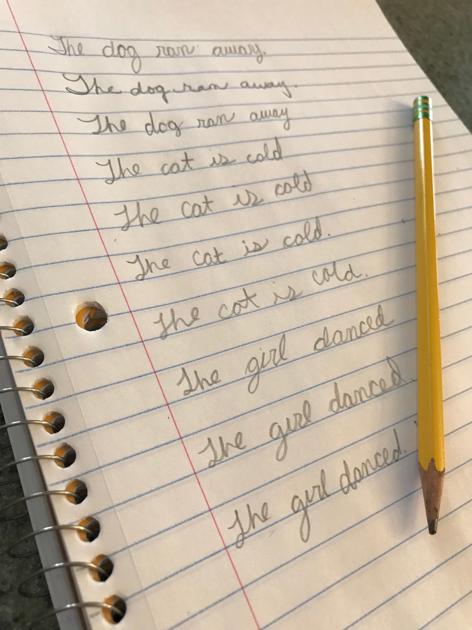 The dog ran away.
The dog ran away.
The dog ran away
The cat is cold
The cat is cold
The cat is cold.
The cat is cold.
The girl danced
The girl danced.
The girl danced.